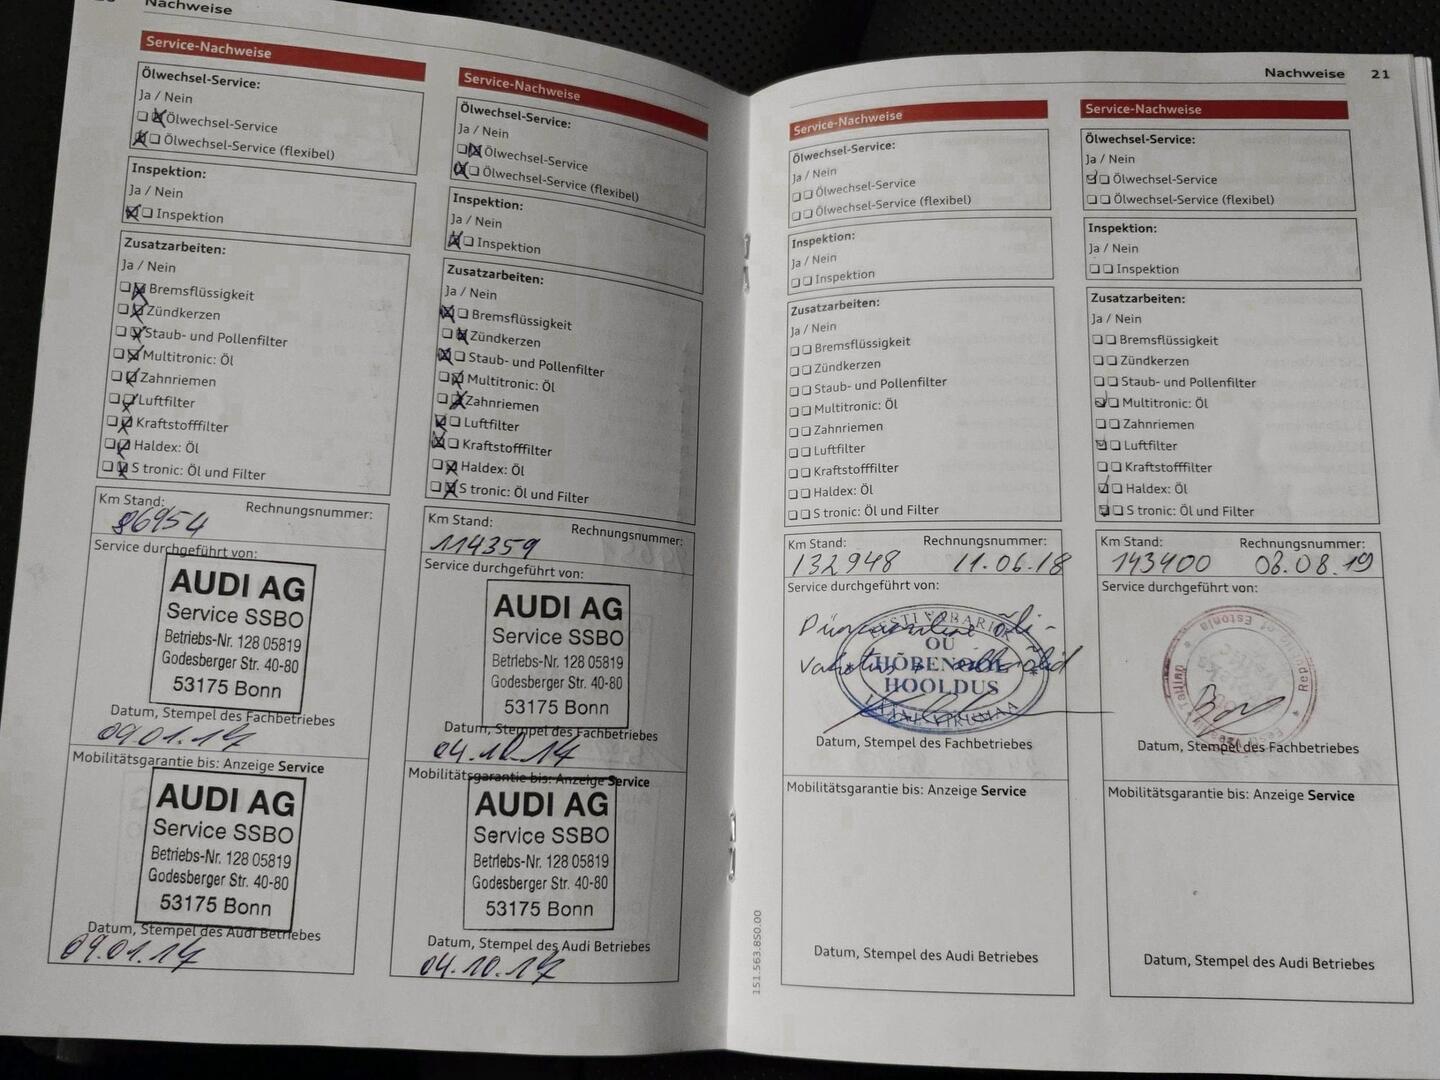 Nachweise
Service-Nachweise
Ölwechsel-Service:
Ja / Nein
Ölwechsel-Service
Ölwechsel-Service (flexibel)
Inspektion:
Ja / Nein
Inspektion
Zusatzarbeiten:
Ja / Nein
Bremsflüssigkeit
Zündkerzen
Staub- und Pollenfilter
Multitronic: Öl
Zahnriemen
Luftfilter
Kraftstofffilter
Haldex: Öl
S tronic: Öl und Filter
Km Stand: Rechnungsnummer:
86954
Service durchgeführt von:
AUDI AG
Service SSBO
Betriebs-Nr. 128 05819
Godesberger Str. 40-80
53175 Bonn
Datum, Stempel des Fachbetriebes
09.01.17
Mobilitätsgarantie bis: Anzeige Service
AUDI AG
Service SSBO
Betriebs-Nr. 128 05819
Godesberger Str. 40-80
53175 Bonn
Datum, Stempel des Audi Betriebes
09.01.17
Service-Nachweise
Ölwechsel-Service:
Ja / Nein
Ölwechsel-Service
Ölwechsel-Service (flexibel)
Inspektion:
Ja / Nein
Inspektion
Zusatzarbeiten:
Ja / Nein
Bremsflüssigkeit
Zündkerzen
Staub- und Pollenfilter
Multitronic: Öl
Zahnriemen
Luftfilter
Kraftstofffilter
Haldex: Öl
S tronic: Öl und Filter
Km Stand: Rechnungsnummer:
114359
Service durchgeführt von:
AUDI AG
Service SSBO
Betriebs-Nr. 128 05819
Godesberger Str. 40-80
53175 Bonn
Datum, Stempel des Fachbetriebes
04.10.17
Mobilitätsgarantie bis: Anzeige Service
AUDI AG
Service SSBO
Betriebs-Nr. 128 05819
Godesberger Str. 40-80
53175 Bonn
Datum, Stempel des Audi Betriebes
04.10.17
Nachweise 21
Service-Nachweise
Ölwechsel-Service:
Ja / Nein
Ölwechsel-Service
Ölwechsel-Service (flexibel)
Inspektion:
Ja / Nein
Inspektion
Zusatzarbeiten:
Ja / Nein
Bremsflüssigkeit
Zündkerzen
Staub- und Pollenfilter
Multitronic: Öl
Zahnriemen
Luftfilter
Kraftstofffilter
Haldex: Öl
S tronic: Öl und Filter
Km Stand: Rechnungsnummer:
132948 11.06.18
Service durchgeführt von:
EESTI VABARIIK
OÜ
HÕBENOOL
HOOLDUS
Datum, Stempel des Fachbetriebes
Mobilitätsgarantie bis: Anzeige Service
Datum, Stempel des Audi Betriebes
151.563.850.00
Service-Nachweise
Ölwechsel-Service:
Ja / Nein
Ölwechsel-Service
Ölwechsel-Service (flexibel)
Inspektion:
Ja / Nein
Inspektion
Zusatzarbeiten:
Ja / Nein
Bremsflüssigkeit
Zündkerzen
Staub- und Pollenfilter
Multitronic: Öl
Zahnriemen
Luftfilter
Kraftstofffilter
Haldex: Öl
S tronic: Öl und Filter
Km Stand: Rechnungsnummer:
143400 08.08.19
Service durchgeführt von:
Republic of Estonia
Datum, Stempel des Fachbetriebes
Mobilitätsgarantie bis: Anzeige Service
Datum, Stempel des Audi Betriebes